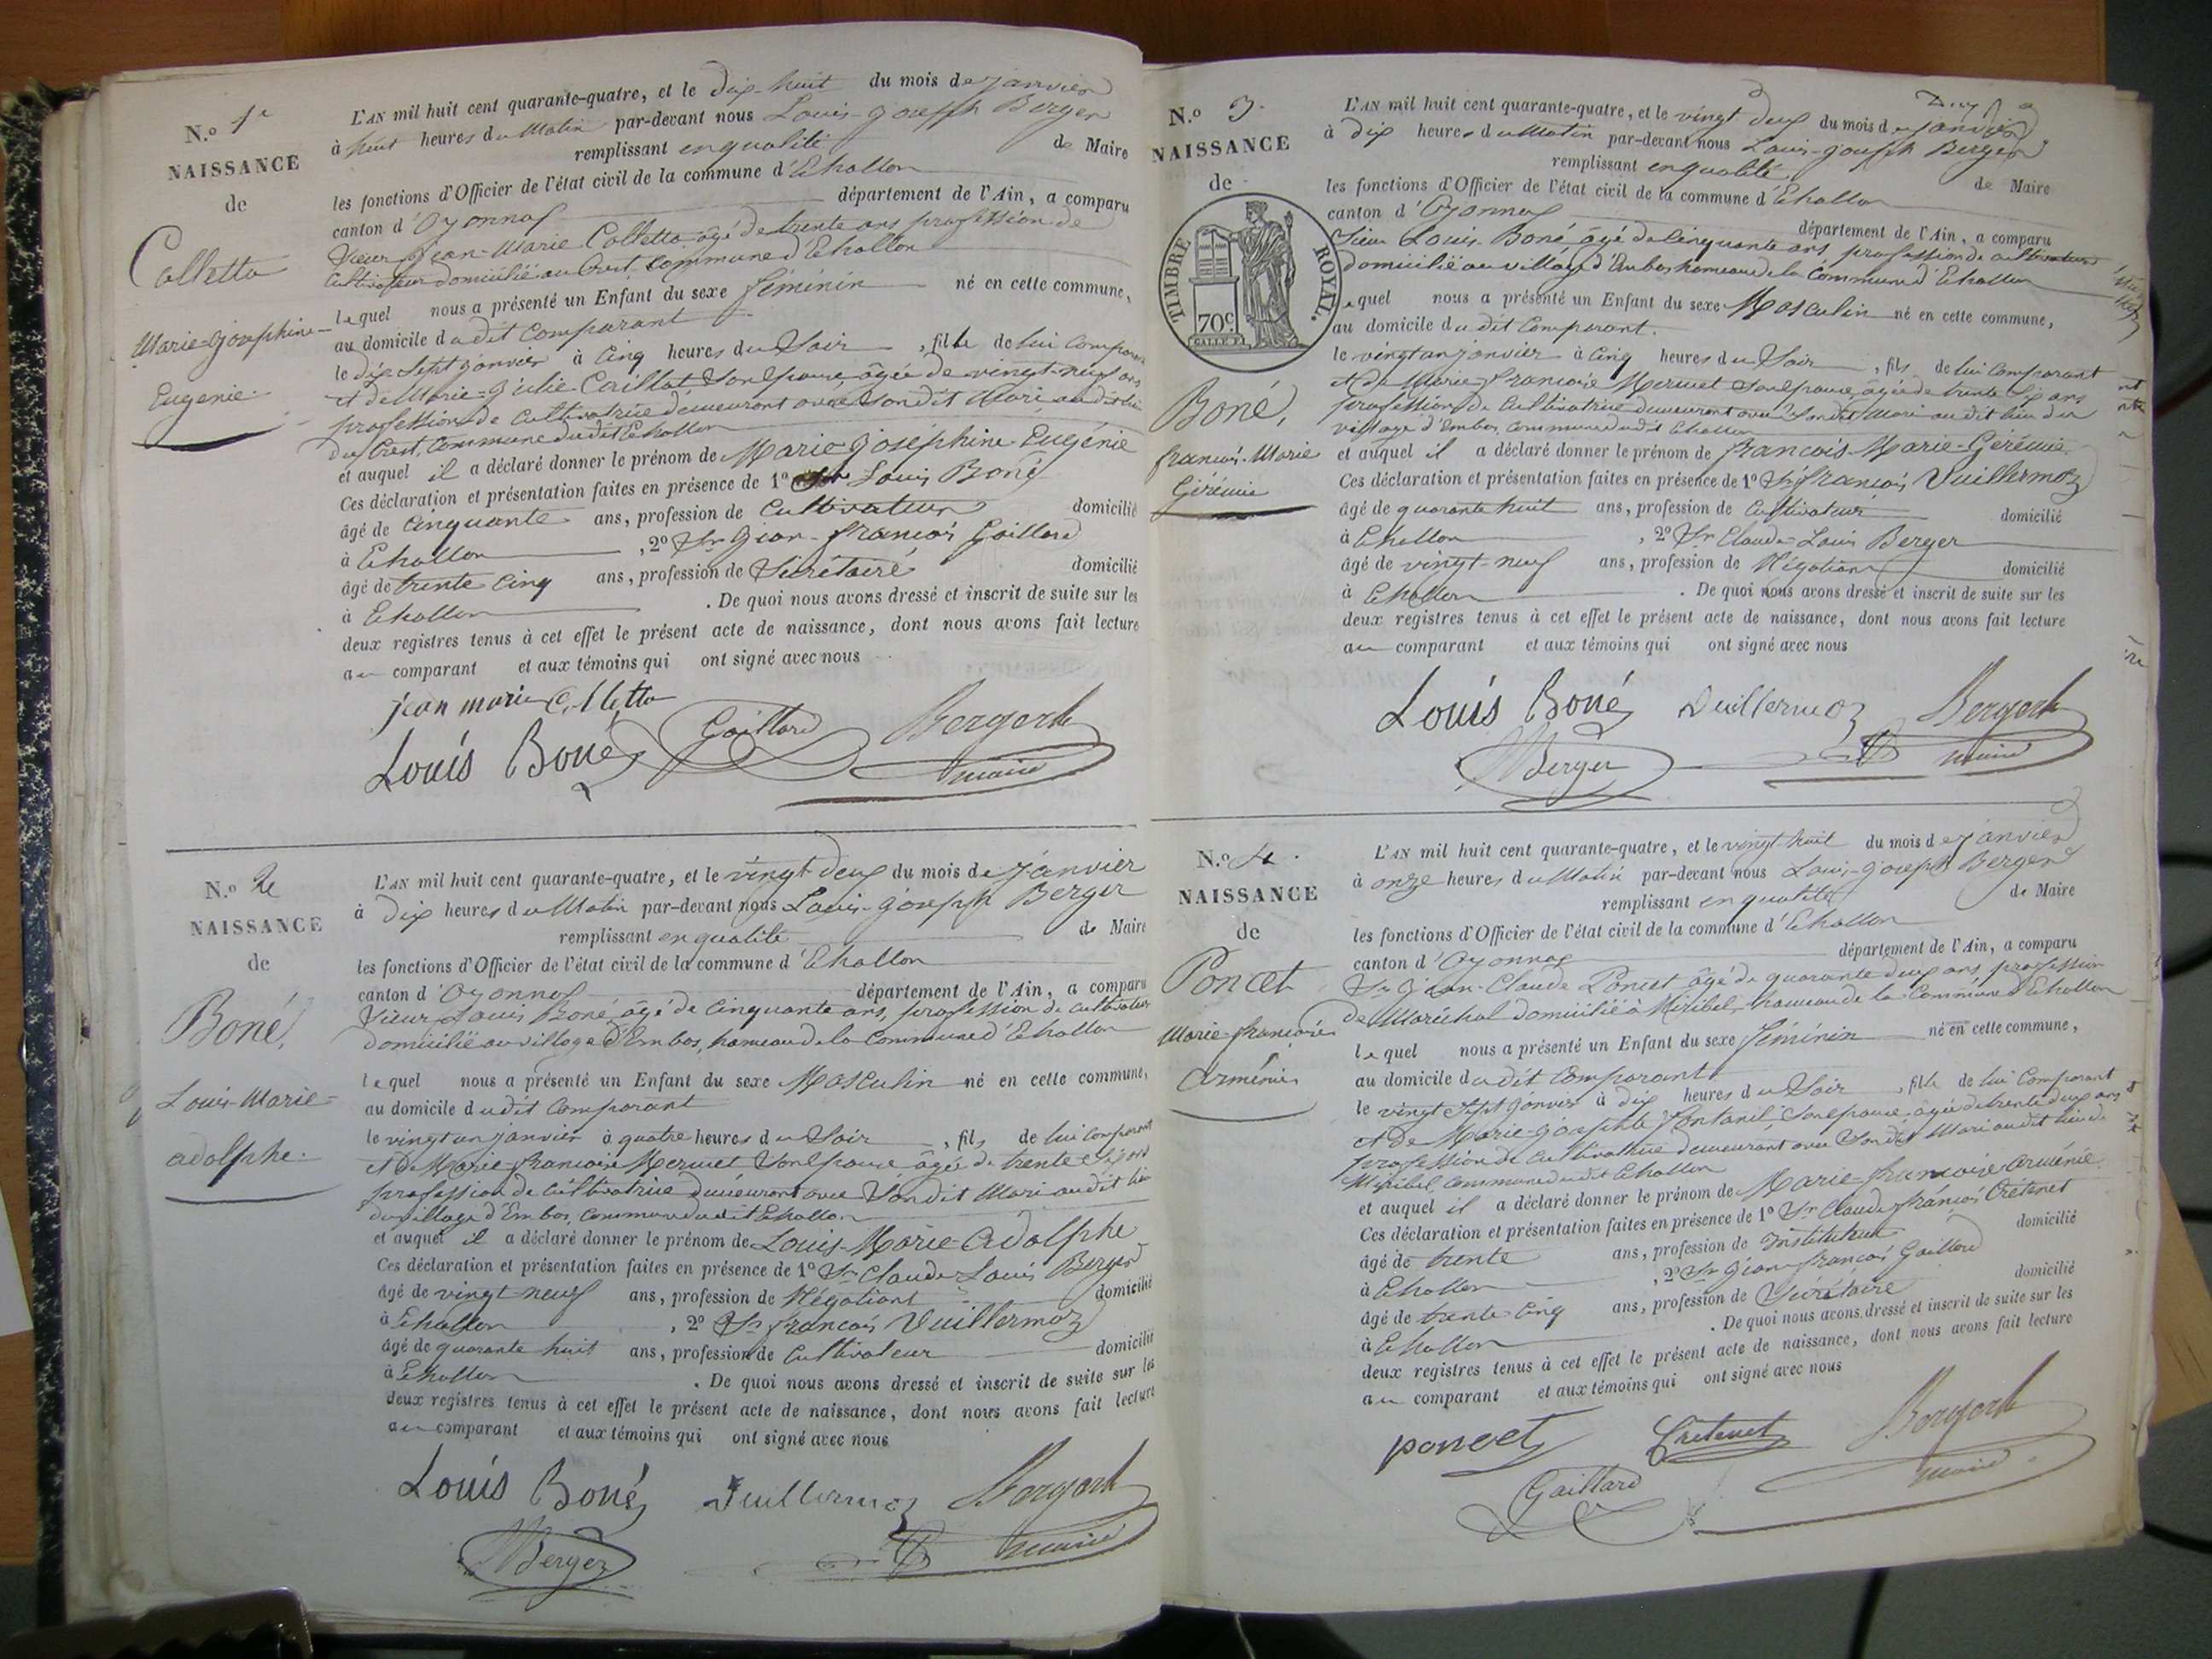 N.o 1er
NAISSANCE
de
Colletta
Marie-Joséphine-
Eugenie.
L'AN mil huit cent quarante-quatre, et le dix-huit du mois de janvier
à huit heures du Matin par-devant nous Louis-Joseph Berger
remplissant en qualité de Maire
les fonctions d'Officier de l'état civil de la commune d'Echallon
canton d'Oyonnax département de l'Ain, a comparu
Sieur Jean-Marie Colletta âgé de trente ans profession de
Cultivateur domicilié au Cret, commune d'Echallon
lequel nous a présenté un Enfant du sexe féminin né en cette commune,
au domicile dudit Comparant
le dix sept janvier à Cinq heures du Soir, fille de lui Comparant
et de Marie-Julie Caillat Son épouse, âgée de vingt-neuf ans
profession de Cultivatrice demeurant avec Son dit Mari au dit lieu
du Crest, Commune dudit Echallon
et auquel il a déclaré donner le prénom de Marie Joséphine Eugénie
Ces déclaration et présentation faites en présence de 1o Sr Louis Boné
âgé de Cinquante ans, profession de Cultivateur domicilié
à Echallon, 2o Sr Jean-François Gaillard
âgé de trente cinq ans, profession de Secrétaire domicilié
à Echallon. De quoi nous avons dressé et inscrit de suite sur les
deux registres tenus à cet effet le présent acte de naissance, dont nous avons fait lecture
au comparant et aux témoins qui ont signé avec nous
jean marie Colletta
Louis Boné Gaillard Berger
maire
N.o 2e
NAISSANCE
de
Boné,
Louis-Marie-
adolphe.
L'AN mil huit cent quarante-quatre, et le vingt deux du mois de janvier
à Dix heures du Matin par-devant nous Louis-Joseph Berger
remplissant en qualité de Maire
les fonctions d'Officier de l'état civil de la commune d'Echallon
canton d'Oyonnax département de l'Ain, a comparu
Sieur Louis Boné âgé de Cinquante ans, profession de cultivateur
domicilié au village d'Embos, hameau de la Commune d'Echallon
lequel nous a présenté un Enfant du sexe Masculin né en cette commune,
au domicile dudit Comparant
le vingt un janvier à quatre heures du Soir, fils de lui Comparant
et de Marie-françoise Mermet Son épouse âgée de trente six ans
profession de Cultivatrice demeurant avec Son dit Mari au dit lieu
du village d'Embos, Commune dudit Echallon
et auquel il a déclaré donner le prénom de Louis-Marie-Adolphe
Ces déclaration et présentation faites en présence de 1o Sr Claude Louis Berger
âgé de vingt-neuf ans, profession de Négotiant domicilié
à Echallon, 2o Sr françois Vuillermoz
âgé de quarante huit ans, profession de Cultivateur domicilié
à Echallon. De quoi nous avons dressé et inscrit de suite sur les
deux registres tenus à cet effet le présent acte de naissance, dont nous avons fait lecture
au comparant et aux témoins qui ont signé avec nous
Louis Boné Vuillermoz Berger
Berger maire
N.o 3.
NAISSANCE
de
TIMBRE ROYAL.
70c.
Boné,
françois-Marie
Gérémie
L'AN mil huit cent quarante-quatre, et le vingt deux du mois de janvier
à dix heures du Matin par-devant nous Louis-Joseph Berger
remplissant en qualité de Maire
les fonctions d'Officier de l'état civil de la commune d'Echallon
canton d'Oyonnax département de l'Ain, a comparu
Sieur Louis Boné âgé de Cinquante ans, profession de cultivateur
domicilié au village d'Embos hameau de la Commune d'Echallon
lequel nous a présenté un Enfant du sexe Masculin né en cette commune,
au domicile du dit Comparant.
le vingt un janvier à Cinq heures du Soir, fils de lui Comparant
et de Marie françoise Mermet Son épouse, âgée de trente Six ans
profession de Cultivatrice demeurant avec Son dit Mari au dit lieu du
village d'Embos, Commune dudit Echallon
et auquel il a déclaré donner le prénom de françois-Marie-Gérémie.
Ces déclaration et présentation faites en présence de 1o Sr françois Vuillermoz
âgé de quarante huit ans, profession de Cultivateur domicilié
à Echallon, 2o Sr Claude Louis Berger
âgé de vingt-neuf ans, profession de Négotiant domicilié
à Echallon. De quoi nous avons dressé et inscrit de suite sur les
deux registres tenus à cet effet le présent acte de naissance, dont nous avons fait lecture
au comparant et aux témoins qui ont signé avec nous
Louis Boné Vuillermoz Berger
Berger maire
N.o 4.
NAISSANCE
de
Poncet
Marie-françoise
Arménie
L'AN mil huit cent quarante-quatre, et le vingt-huit du mois de janvier
à onze heures du Matin par-devant nous Louis-Joseph Berger
remplissant en qualité de Maire
les fonctions d'Officier de l'état civil de la commune d'Echallon
canton d'Oyonnax département de l'Ain, a comparu
Sr Jean-Claude Poncet âgé de quarante deux ans, profession
de Maréchal domicilié à Miribel, hameau de la Commune d'Echallon
lequel nous a présenté un Enfant du sexe féminin né en cette commune,
au domicile dudit Comparant
le vingt Sept janvier à dix heures du Soir, fille de lui Comparant
et de Marie-Josephte Fontanil, Son épouse, âgée de trente deux ans
profession de Cultivatrice demeurant avec Son dit Mari au dit lieu de
Miribel, Commune dudit Echallon
et auquel il a déclaré donner le prénom de Marie-françoise Arménie.
Ces déclaration et présentation faites en présence de 1o Sr Claude françois Crétenet
âgé de trente ans, profession de Instituteur domicilié
à Echallon, 2o Sr Jean françois Gaillard
âgé de trente cinq ans, profession de Secrétaire domicilié
à Echallon. De quoi nous avons dressé et inscrit de suite sur les
deux registres tenus à cet effet le présent acte de naissance, dont nous avons fait lecture
au comparant et aux témoins qui ont signé avec nous
poncet Crétenet Berger
Gaillard maire